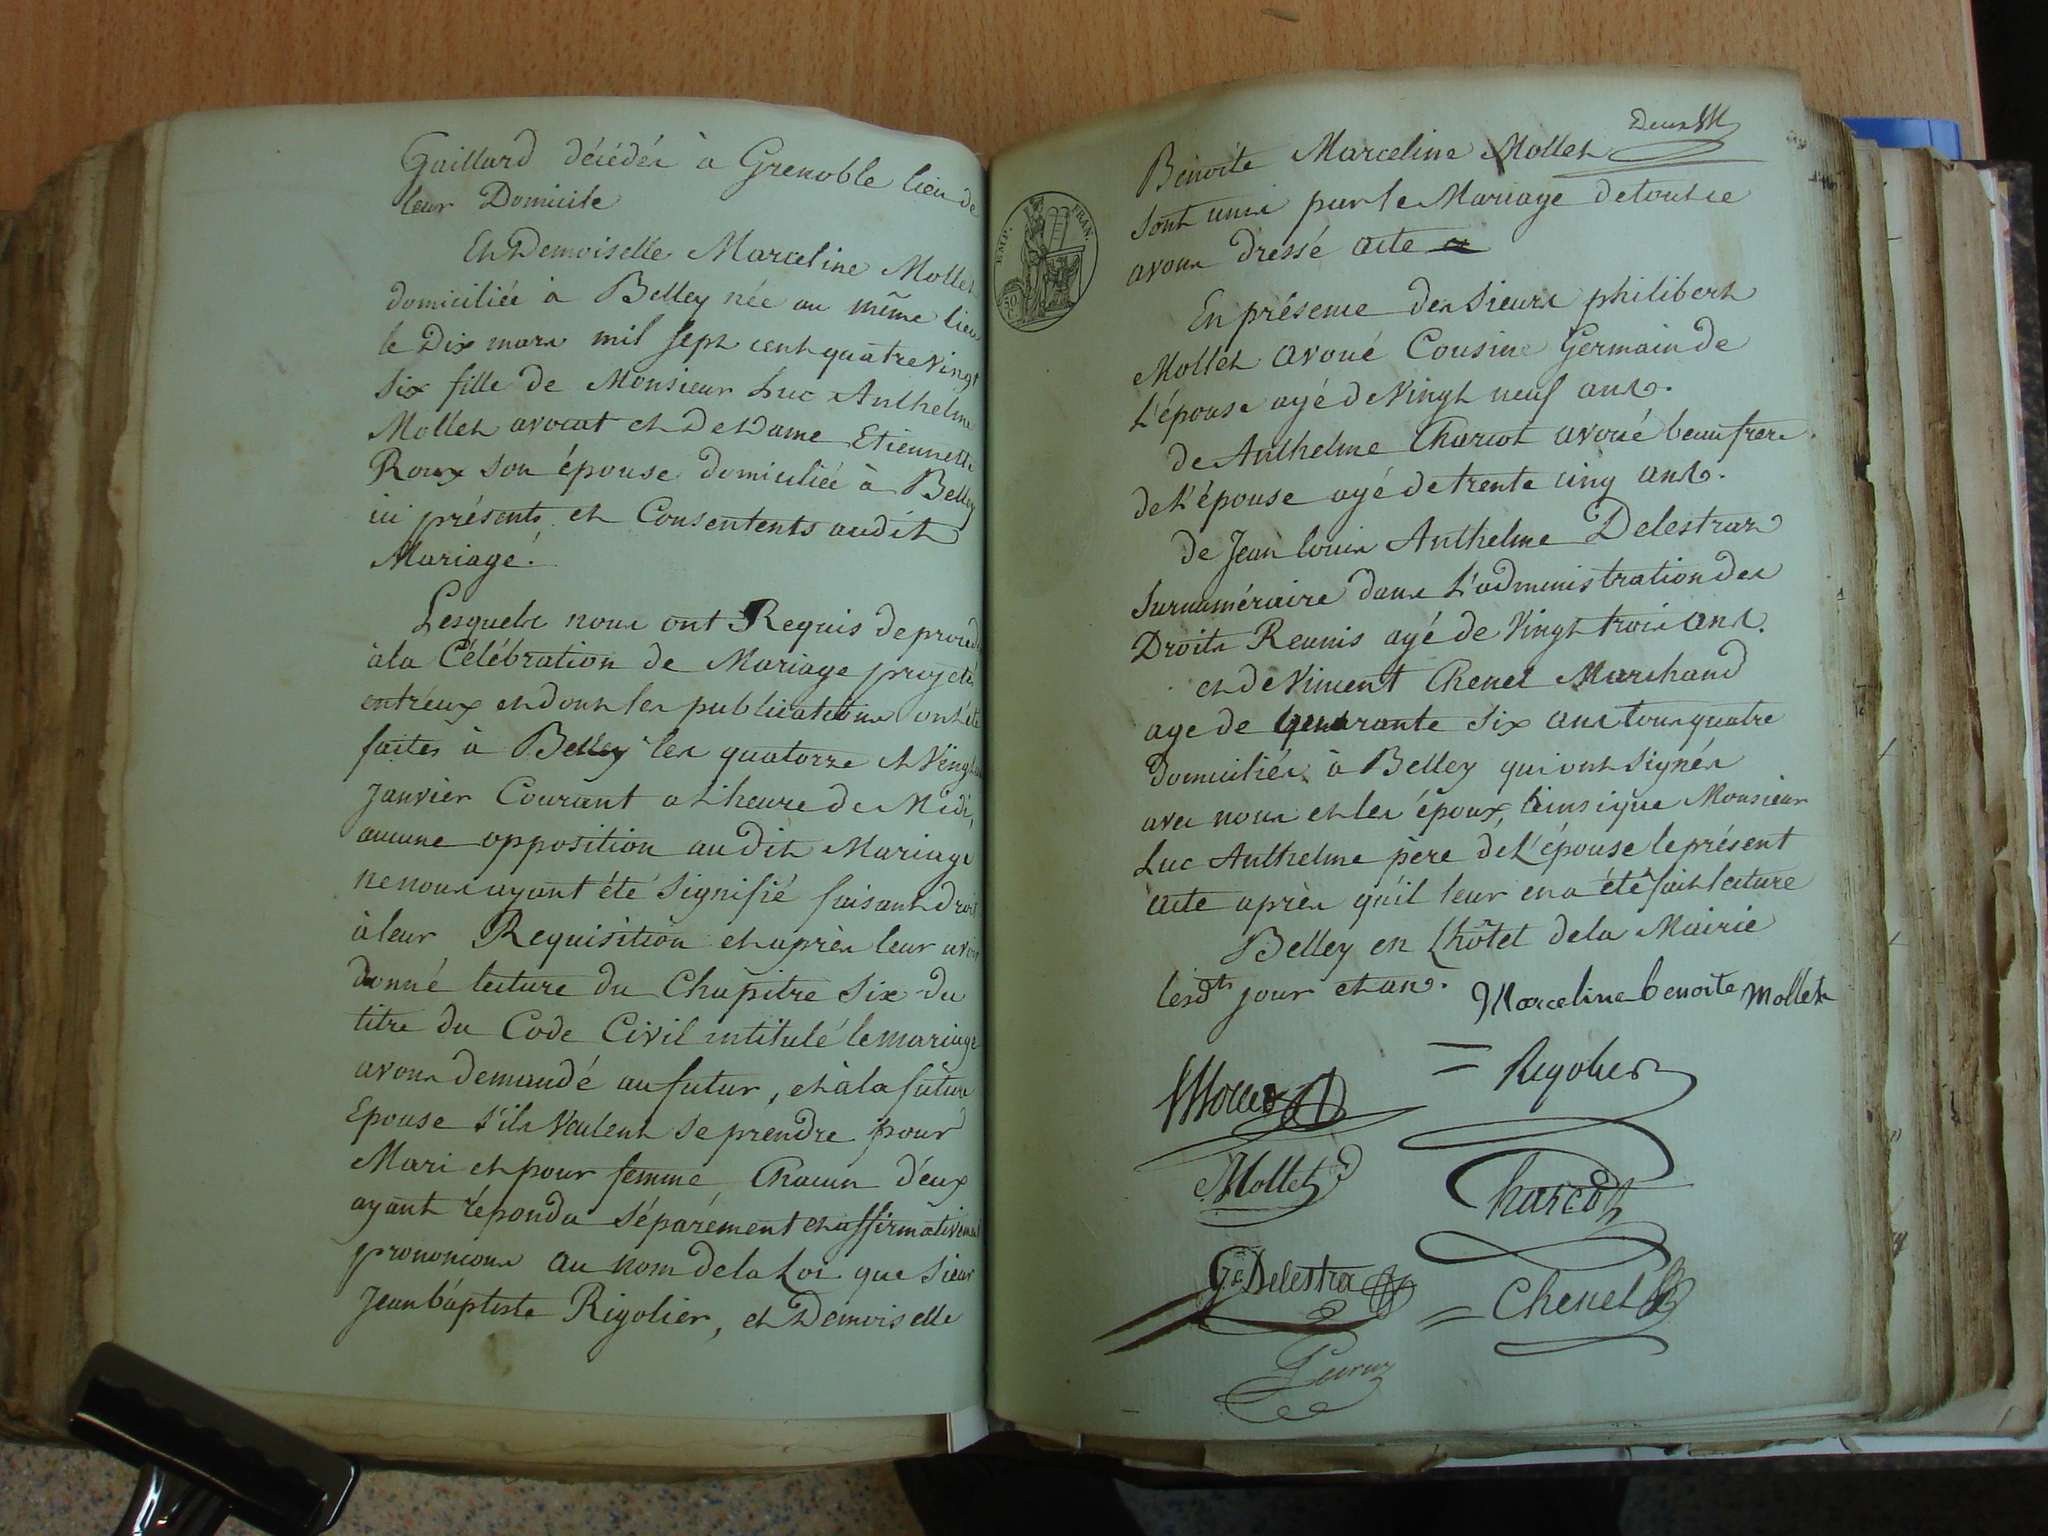 Gaillard décédés à Grenoble lieu de
leur Domicile
Et Demoiselle Marceline Mollet
domiciliée à Belley née au même lieu
le Dix mars mil sept cent quatre vingt
six fille de Monsieur Luc Anthelme
Mollet avocat et de Dame Etiennette
Roux son épouse domiciliée à Belley
ici présents et Consentents audit
Mariage.
Lesquels nous ont Requis de procéder
à la Célébration de Mariage projeté
entréux et dont les publications ont été
faites à Belley les quatorze et Vingt
Janvier Courant a L'heure de Midi,
aucune opposition audit Mariage
ne nous ayant été signifié faisant droit
à leur Requisition et après leur avoir
donné lecture du Chapitre Six du
titre du Code Civil intitulé le mariage
avons demandé au futur, et à la future
Epouse s'ils Veulent se prendre pour
Mari et pour femme, Chacun d'eux
ayant répondu séparément et affirmativement
prononcons au nom de la Loi que Sieur
Jean baptiste Rigolier, et Demoiselle
Deux
EMP. FRAN.
50 C
Benoite Marceline Mollet
sont unis par le Mariage de tout ce
avons dressé acte
En présence des Sieurs philibert
Mollet avoué Cousine Germain de
L'épouse agé de Vingt neuf ans.
de Anthelme Charcot avoué beaufrere
de L'épouse agé de trente cinq ans.
de Jean louis Anthelme Delestraz
Surnuméraire dans L'administration des
Droits Reunis agé de Vingt trois ans.
et de Vincent Chenet Marchand
age de quarante six ans tous quatre
domiciliés à Belley qui ont signés
avec nous et les époux, ainsi que Monsieur
Luc Anthelme père de L'épouse le présent
acte après qu'il leur en a été fait lecture
Belley en L'hôtel de la Mairie
lesdts jour et an.
Marceline benoite Mollet
Rigolier
Mollet
Charcot
Delestra
Chenet